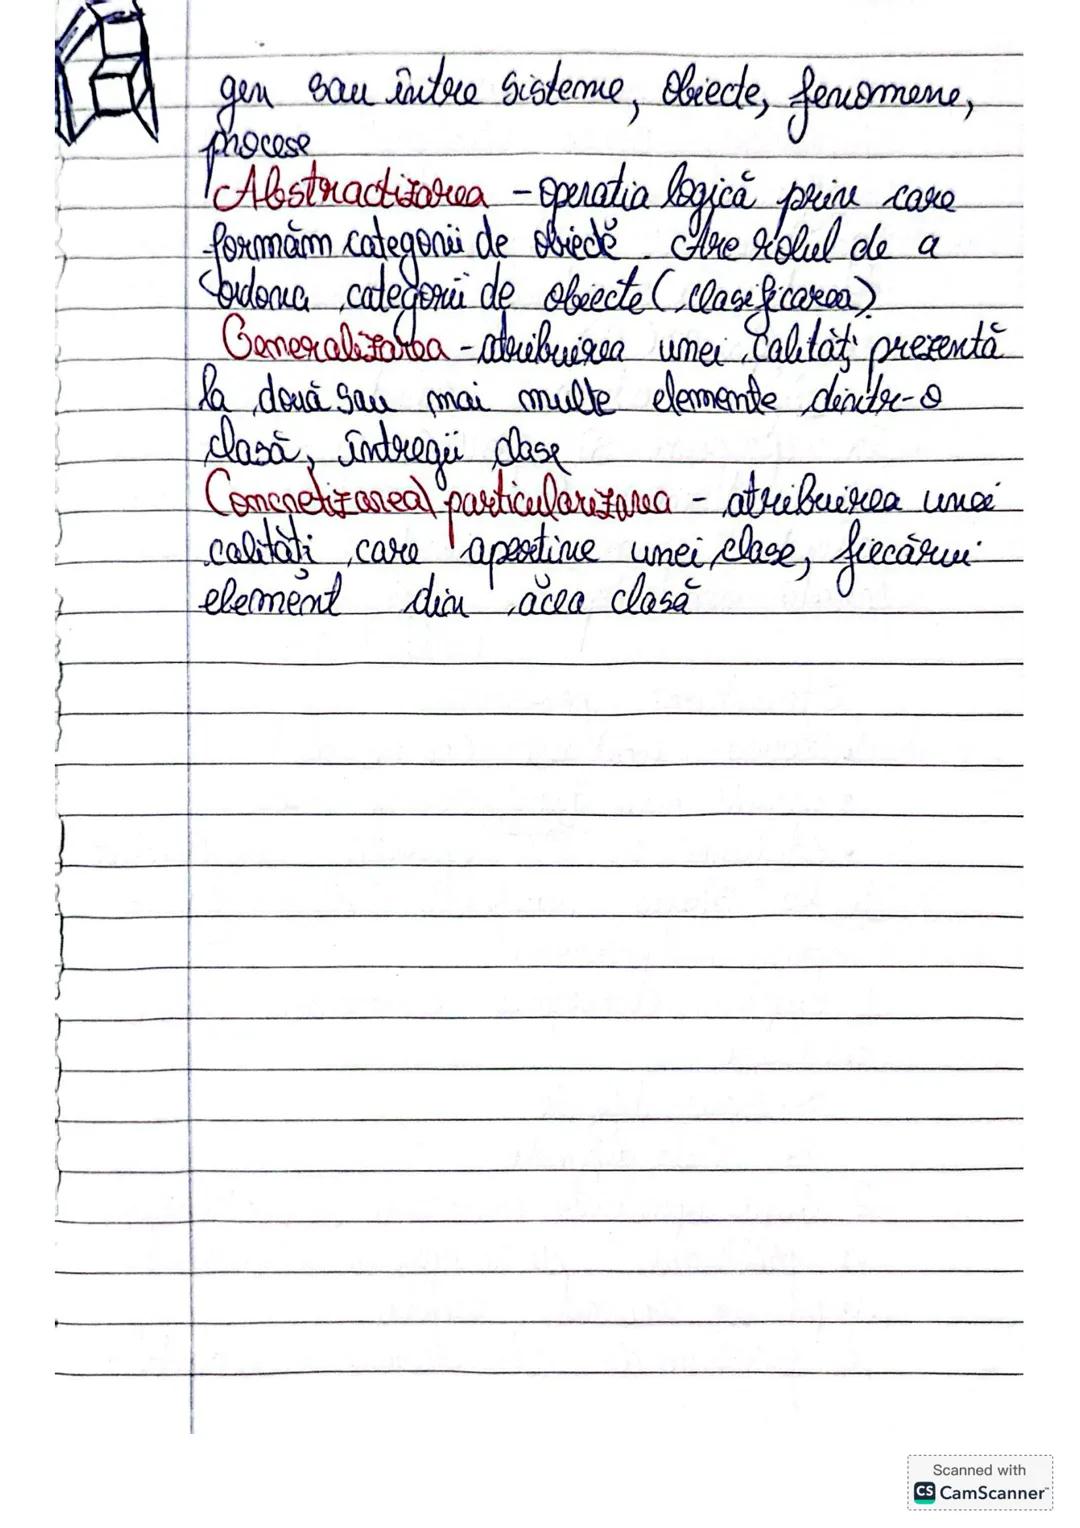 gen sau între sisteme, obiecte, fenomene,
procese
Abstractizarea - operatia logică prin care
formăm categorii de obiecte. Are rolul de a
ordona categorii de obiecte (clasificarea)
Generalizarea - atribuirea unei calități prezentă
la două sau mai multe elemente dintr-o
clasă, întregii clase
Concretizarea/particularizarea - atribuirea unei
calități care aparține unei clase, fiecărui
element din acea clasă
Scanned with
CS CamScanner